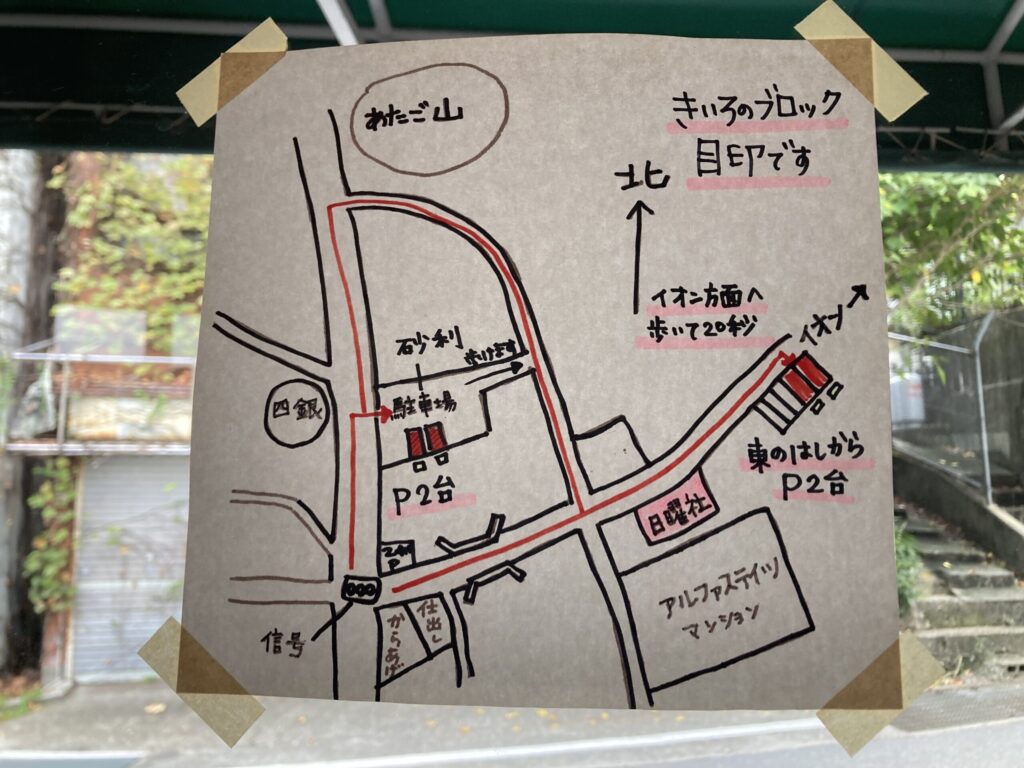 あたご山
きいろのブロック
目印です
北
イオン方面へ
歩いて20秒
イオン
砂利
歩けます
駐車場
四銀
P2台
東のはしから
P2台
日曜社
アルファステイツ
マンション
信号
からあげ
仕出し
P